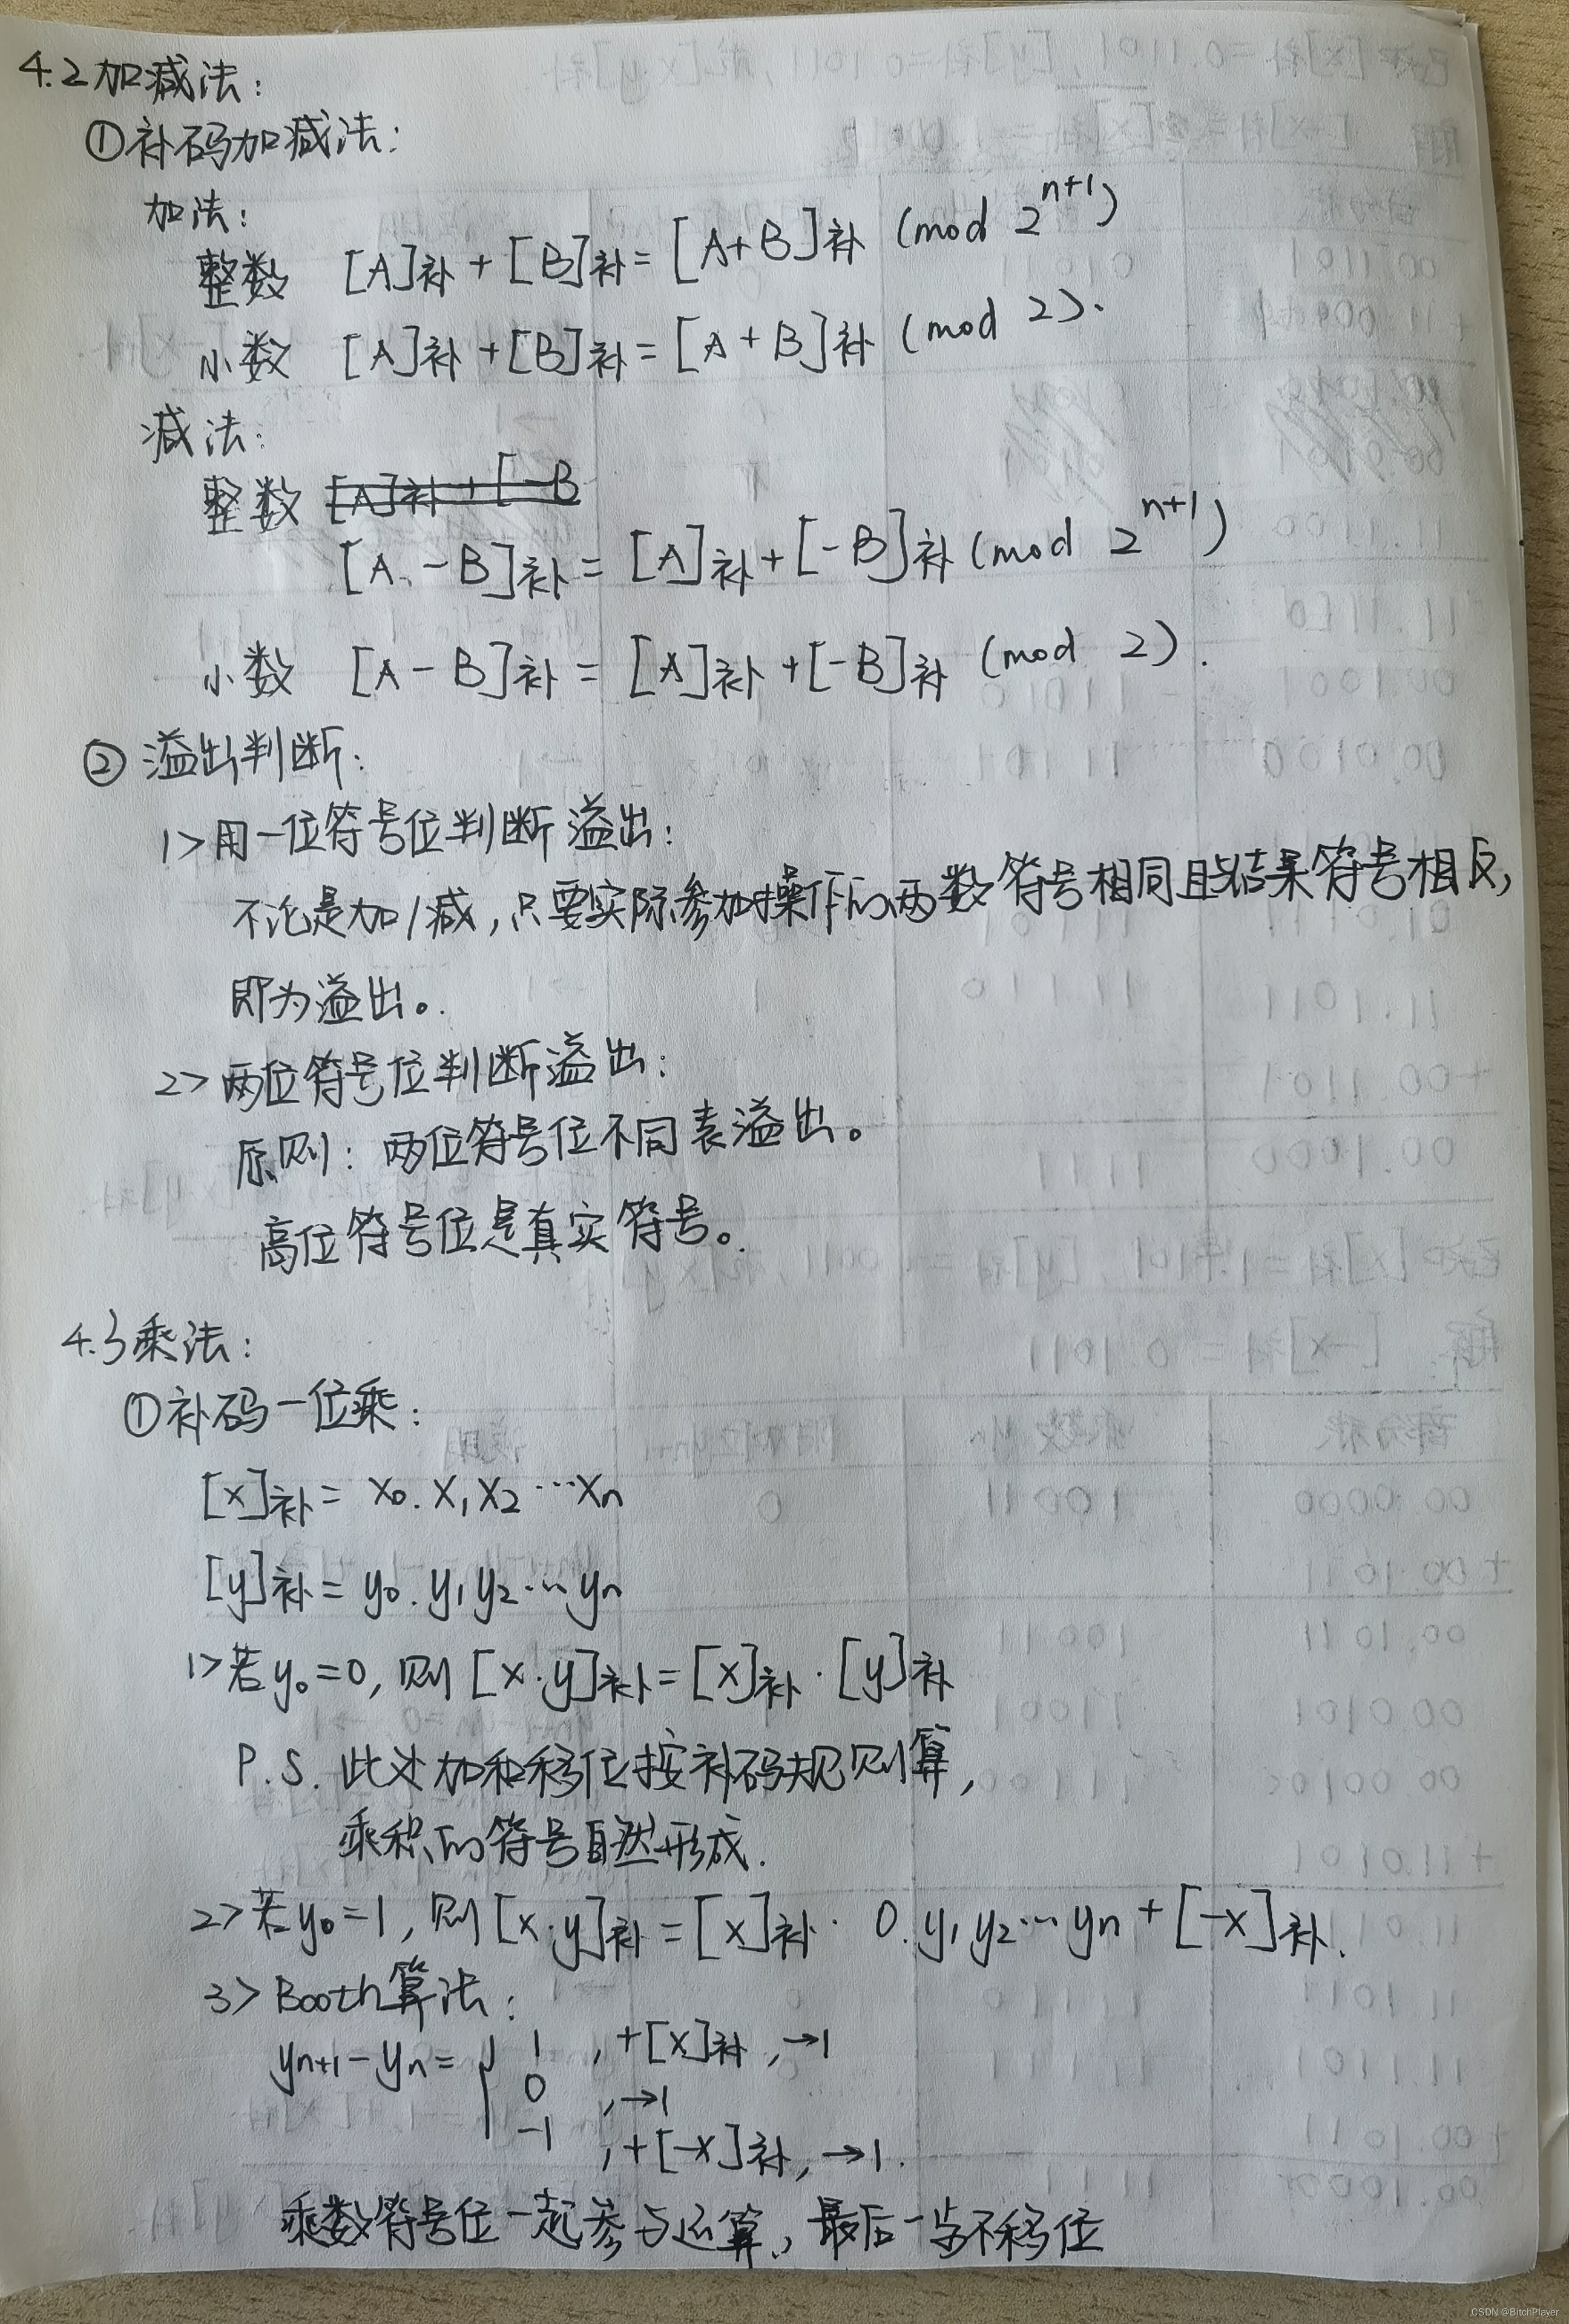 4.2加减法:
①补码加减法:
加法:
整数 [A]补+[B]补=[A+B]补 (mod 2^{n+1})
小数 [A]补+[B]补=[A+B]补 (mod 2).
减法:
整数 [A]补+[-B
[A-B]补=[A]补+[-B]补(mod 2^{n+1})
小数 [A-B]补=[A]补+[-B]补 (mod 2).
② 溢出判断:
1>用一位符号位判断溢出:
不论是加/减,只要实际参加操作的两数符号相同且结果符号相反,
即为溢出。
2>两位符号位判断溢出:
原则:两位符号位不同表溢出。
高位符号位是真实符号。
4.3乘法:
①补码一位乘:
[x]补= x₀.x₁x₂…xₙ
[y]补= y₀.y₁y₂…yₙ
1>若y₀=0,则[x·y]补=[x]补·[y]补
P.S. 此处加和移位按补码规则算,
乘积的符号自然形成.
2>若y₀=1,则[x·y]补=[x]补· 0.y₁y₂…yₙ+[-x]补.
3>Booth算法:
yₙ₊₁-yₙ={ 1 ,+[x]补,→1
0 ,→1
-1 ,+[-x]补,→1.
乘数符号位一起参与运算,最后一步不移位
CSDN @BitchPlayer